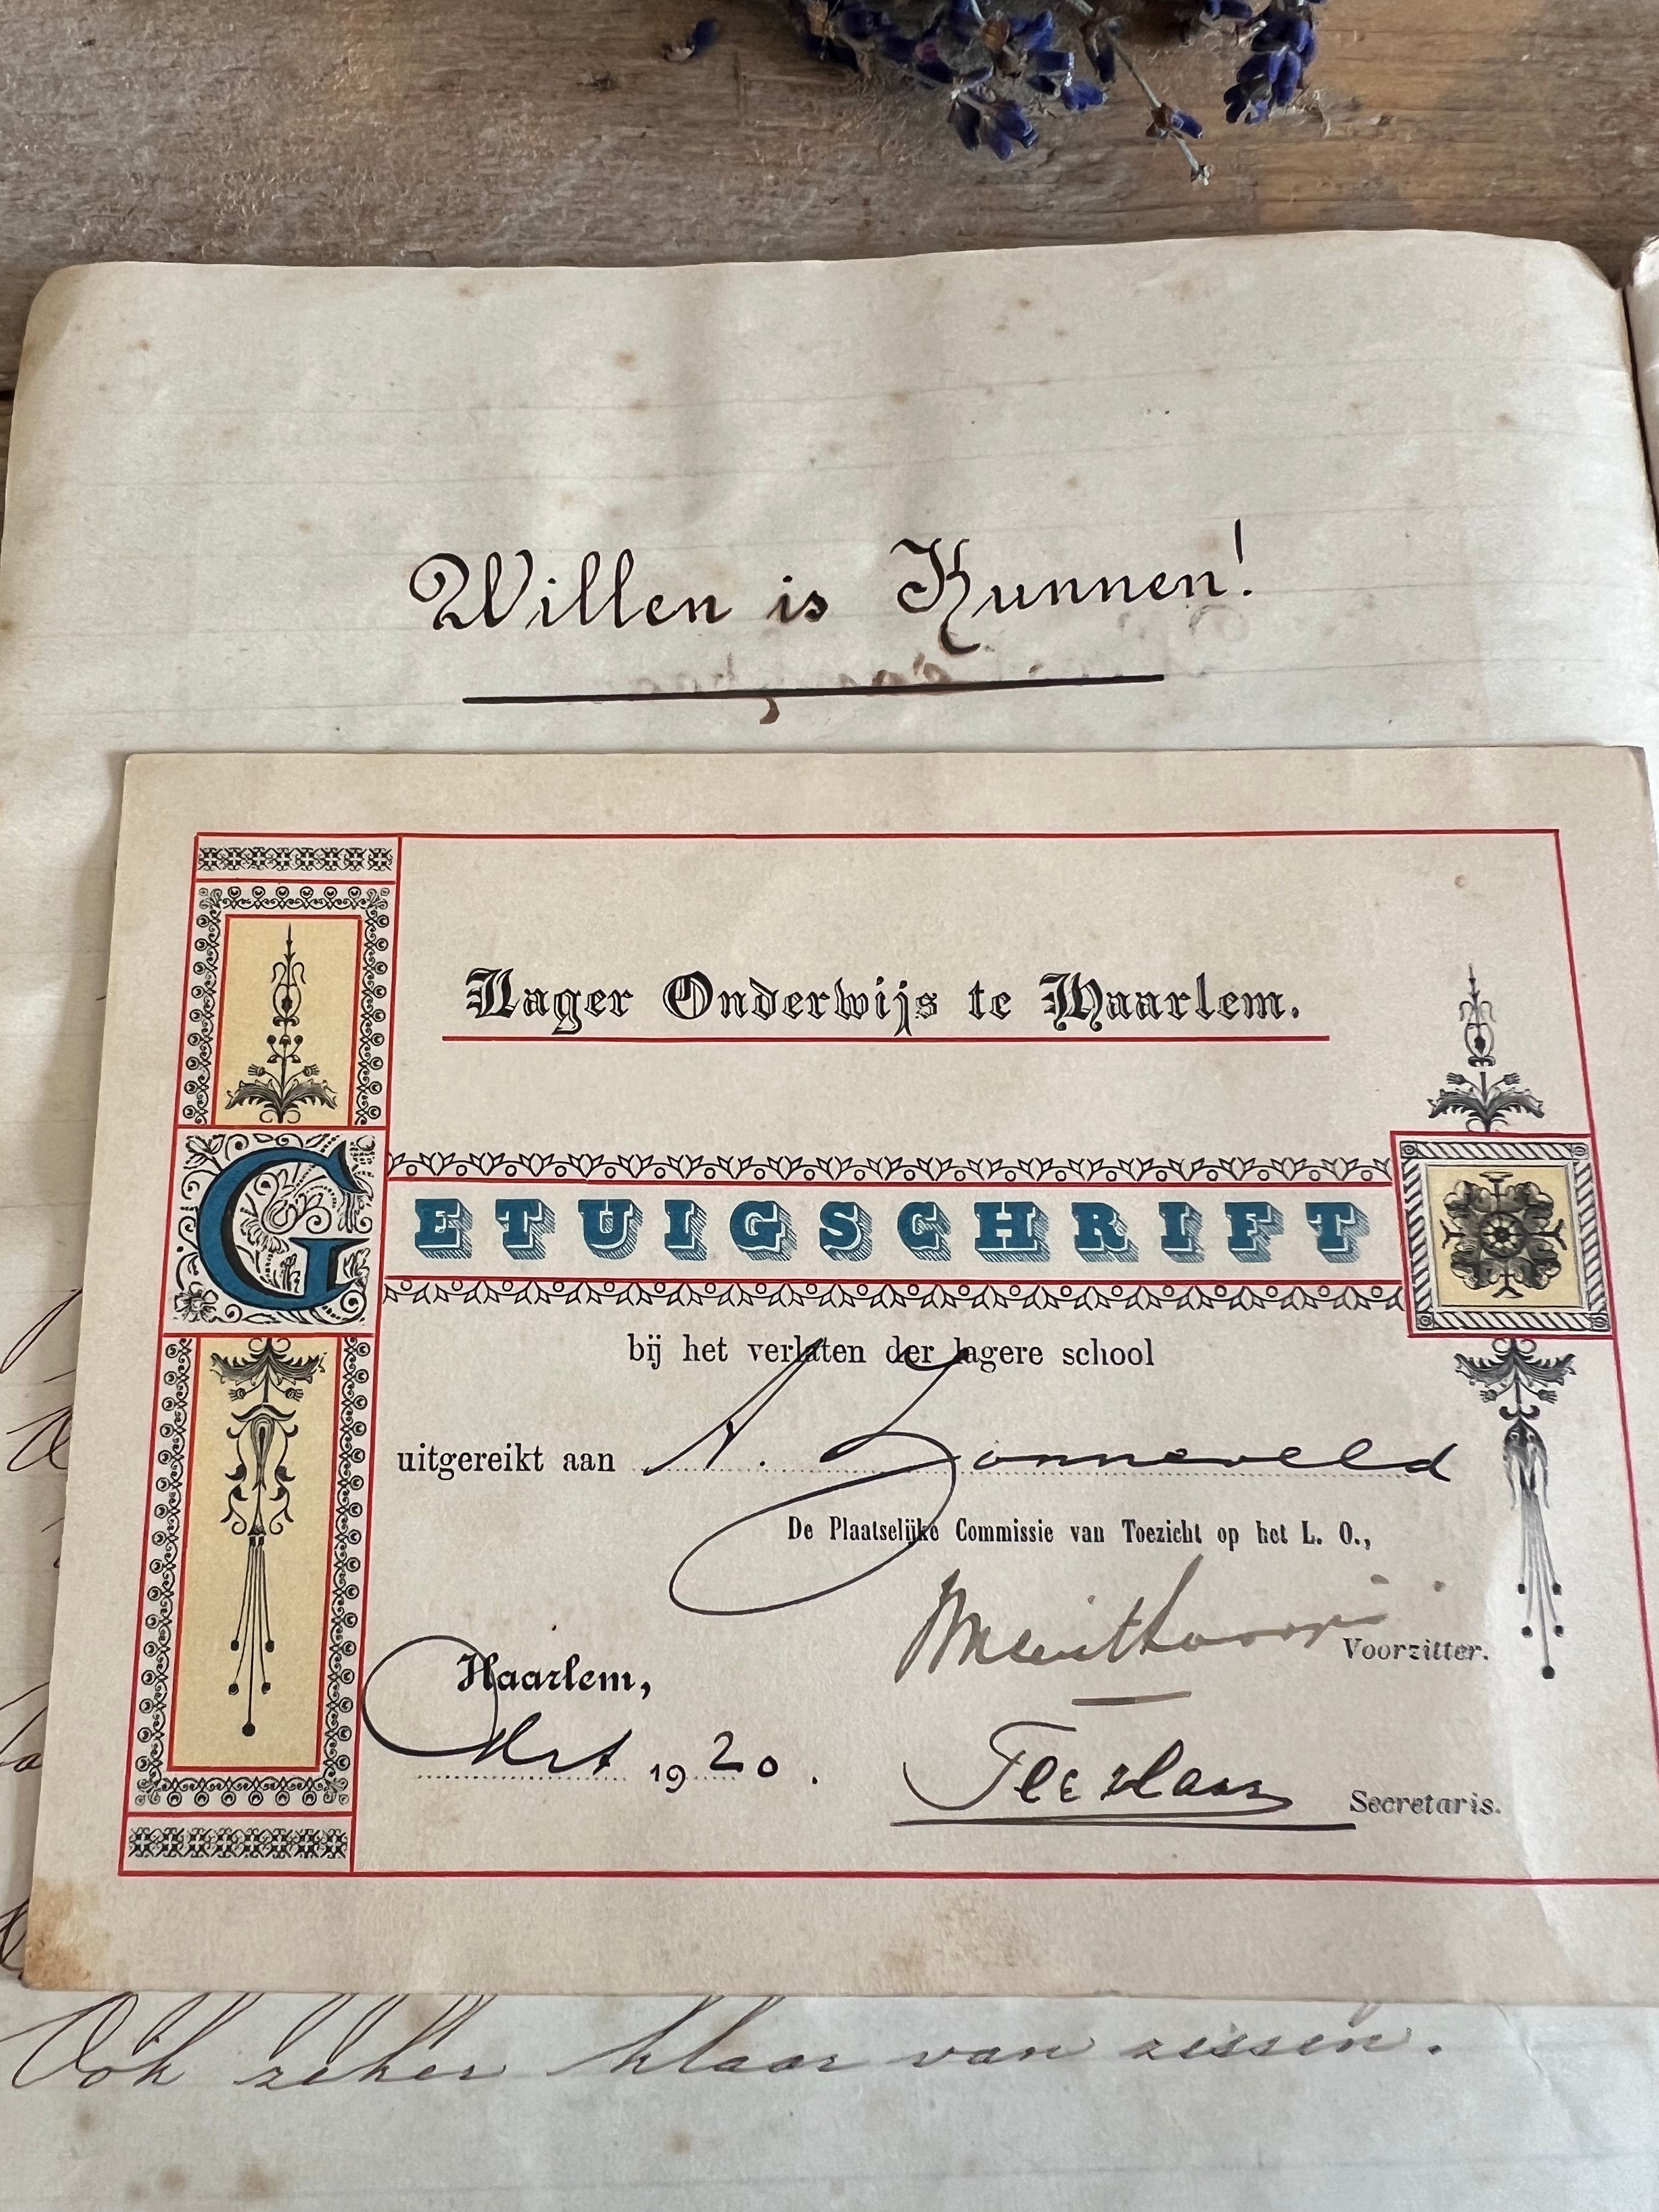 Willen is Kunnen!
Lager Onderwijs te Haarlem.
GETUIGSCHRIFT
bij het verlaten der lagere school
uitgereikt aan A. Zonneveld
De Plaatselijke Commissie van Toezicht op het L. O.,
Voorzitter.
Haarlem,
Mrt 1920.
Secretaris.
Ook zeker klaar van zessen.